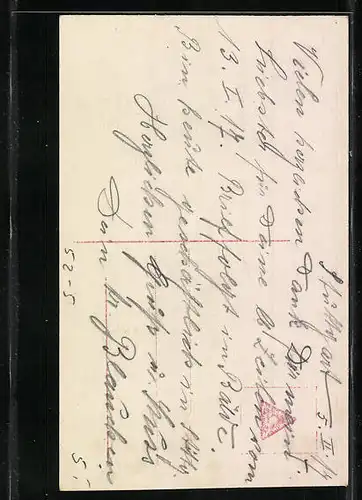 Stuttgart 5. II. 17
Vielen herzlichen Dank Du mein
Liebste für Deine lb Zeilen vom
13. I. 17. Brief folgt in Bälde.
Bin heute geschäftlich in Stuttg.
Herzlichen Gruß u. Kuss
Dein
52-5
5.-